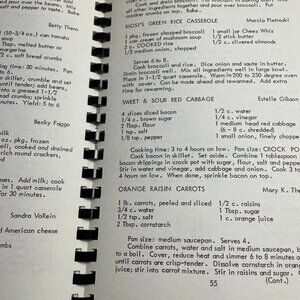 and pour over the beans.
crumbs on top. Bake
Betty Thero
1 (10-3/4 oz.) can
soup
Tbsp. melted butter or
margarine
/2 c. soft bread crumbs
30 minutes.
Yield: 5 to 6
Becky Faggo
pkg. frozen
Add milk; cook
for 30 minutes.
Sandra VoRein
American cheese
KIOSI'S GREEN RICE CASSEROLE
Marcia Pietroski
1 pkg. frozen chopped broccoli
1 small jar Cheez Whiz
1 can cream of mushroom soup
1/2 c. milk
2 c. COOKED rice
1/2 c. slivered almonds
1/2 medium onion, chopped
Serves 6 to 8.
Cook broccoli and rice. Dice onion and saute in butter.
Drain broccoli well. Mix all ingredients well in large bowl.
Place in 1-1/2 quart casserole. Warm in 200 to 250 degree oven
before serving. Can be made ahead and rewarmed. Add extra
milk for long time in oven.
SWEET & SOUR RED CABBAGE
Estelle Gibson
4 slices diced bacon
1/2 c. water
1/4 c. brown sugar
1/4 c. vinegar
2 Tbsp. flour
1 medium head red cabbage
1 tsp. salt
(6 - 8 c. shredded)
1/8 tsp. pepper
1 small onion, finely chopped
Cooking time: 3 to 4 hours on low. Pan size: CROCK PO
Cook bacon in skillet. Set aside. Combine 1 tablespoon
bacon drippings in crock pot with sugar, flour, salt and pepper.
Stir in water and vinegar, add cabbage and onion. Cook 3 to
4 hours on low. When done, sprinkle bacon on top.
ORANGE RAISIN CARROTS
Mary K. Th
1 lb. carrots, peeled and sliced
1/2 c. raisins
3/4 c. water
1 Tbsp. sugar
1/2 tsp. salt
1 c. orange juice
2 Tbsp. cornstarch
Pan size: medium saucepan. Serves 4.
Combine carrots, water and salt in medium saucepan, b
to a boil. Cover, reduce heat and simmer 6 to 8 minutes o
until carrots are crisp-tender. Dissolve cornstarch in orange
juice; stir into carrot mixture. Stir in raisins and sugar.
55
(Cont.)